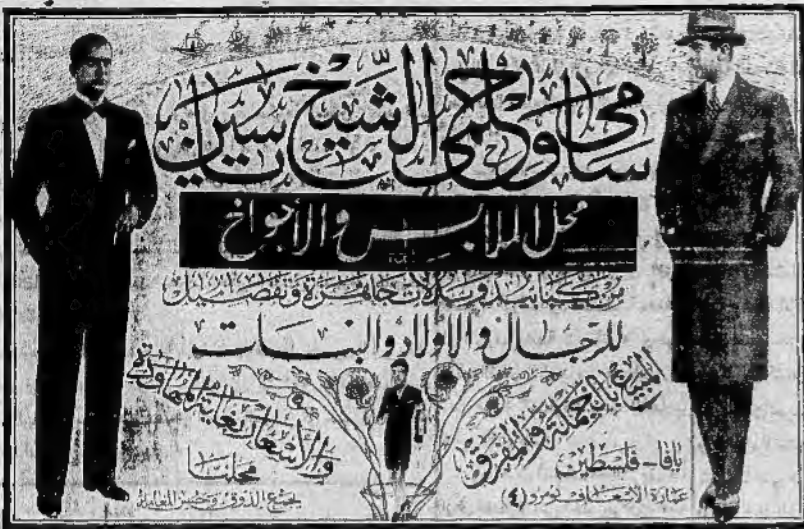 سامي وحلمي الشيخ ياسين
محل الملابس والأجواخ
من كبابيد وبدلات جاهزة وتفصيل
للرجال والاولاد والبنات
المبيع بالجملة والمفرق
والأسعار بغاية المهاودة
يافا - فلسطين
عمارة الاسعاف نومرو (٤)
محلنا
يجمع الذوق وحسن المعاملة